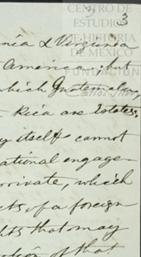 CENTRO
DE
ESTUDIOS
DE HISTORIA
DE MEXICO
FUNDACIÓN
3
& Virginia
America; but
which Guatemala,
Rica are Estates,
by itself cannot
ational engage-
private, which
cts of a foreign
ghts that may
of that